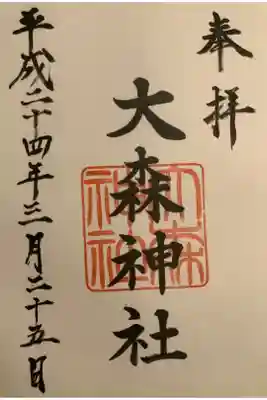 奉拝
大森神社
平成二十四年三月二十五日